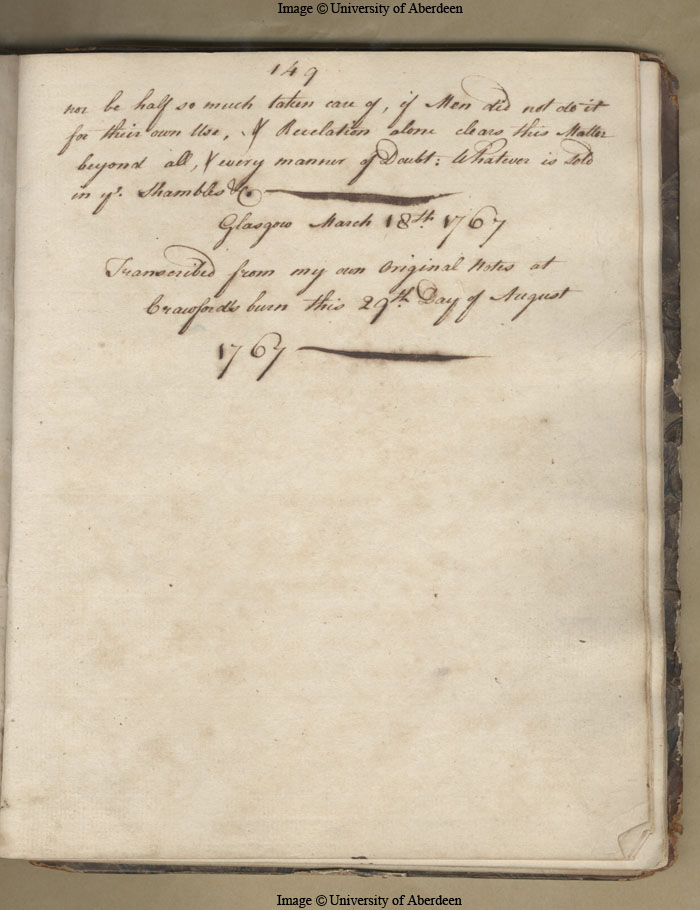 Image © University of Aberdeen
149
nor be half so much taken care of, if Men did not do it
for their own Use, & Revelation alone clears this Matter
beyond all, & every manner of Doubt: Whatever is Sold
in yᵉ. Shambles &c
Glasgow March 18th. 1767
Transcribed from my own Original Notes at
Crawford's burn this 29th. Day of August
1767
Image © University of Aberdeen